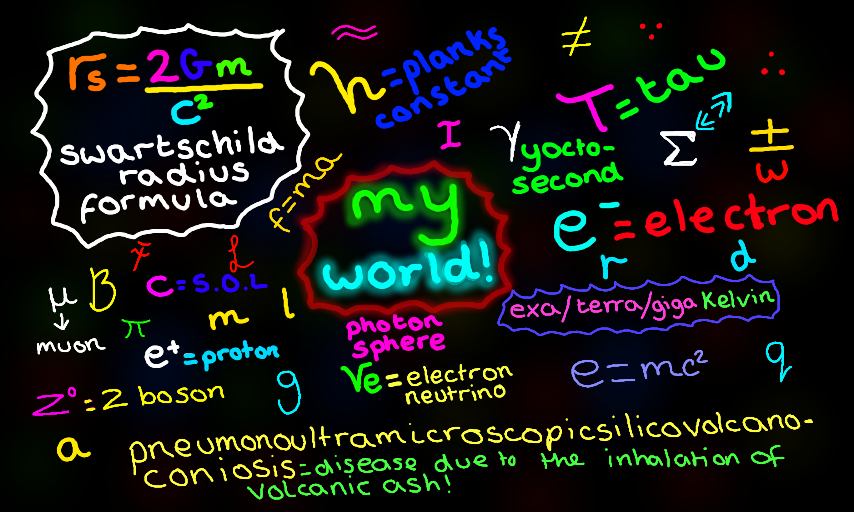 rs = 2Gm
c²
swartschild
radius
formula
≈
h = planks
constant
≠
∵
∴
T = tau
I
γ
yocto-
second
Σ
±
w
f=ma
my
world!
e⁻ = electron
r
d
L
μ
↓
muon
B
c = S.O.L
π
m
l
e⁺ = proton
exa/terra/giga kelvin
photon
sphere
νe = electron
neutrino
e=mc²
q
Z⁰ = Z boson
g
a
pneumonoultramicroscopicsilicovolcano-
coniosis = disease due to the inhalation of
volcanic ash!